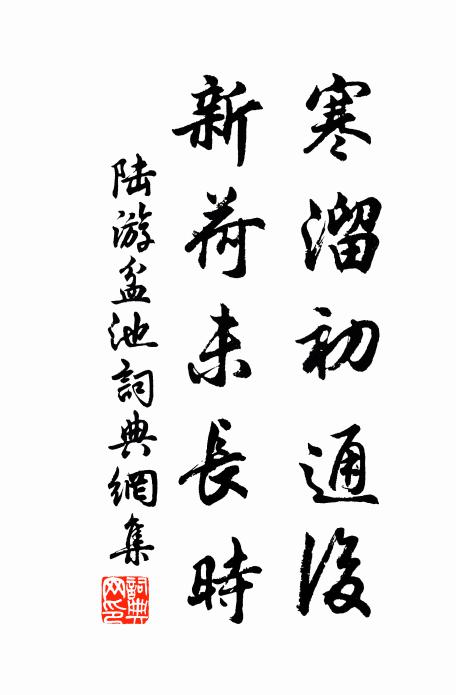 寒溜初通後
新荷未長時
陸游盆池詞典網集
詞典網印